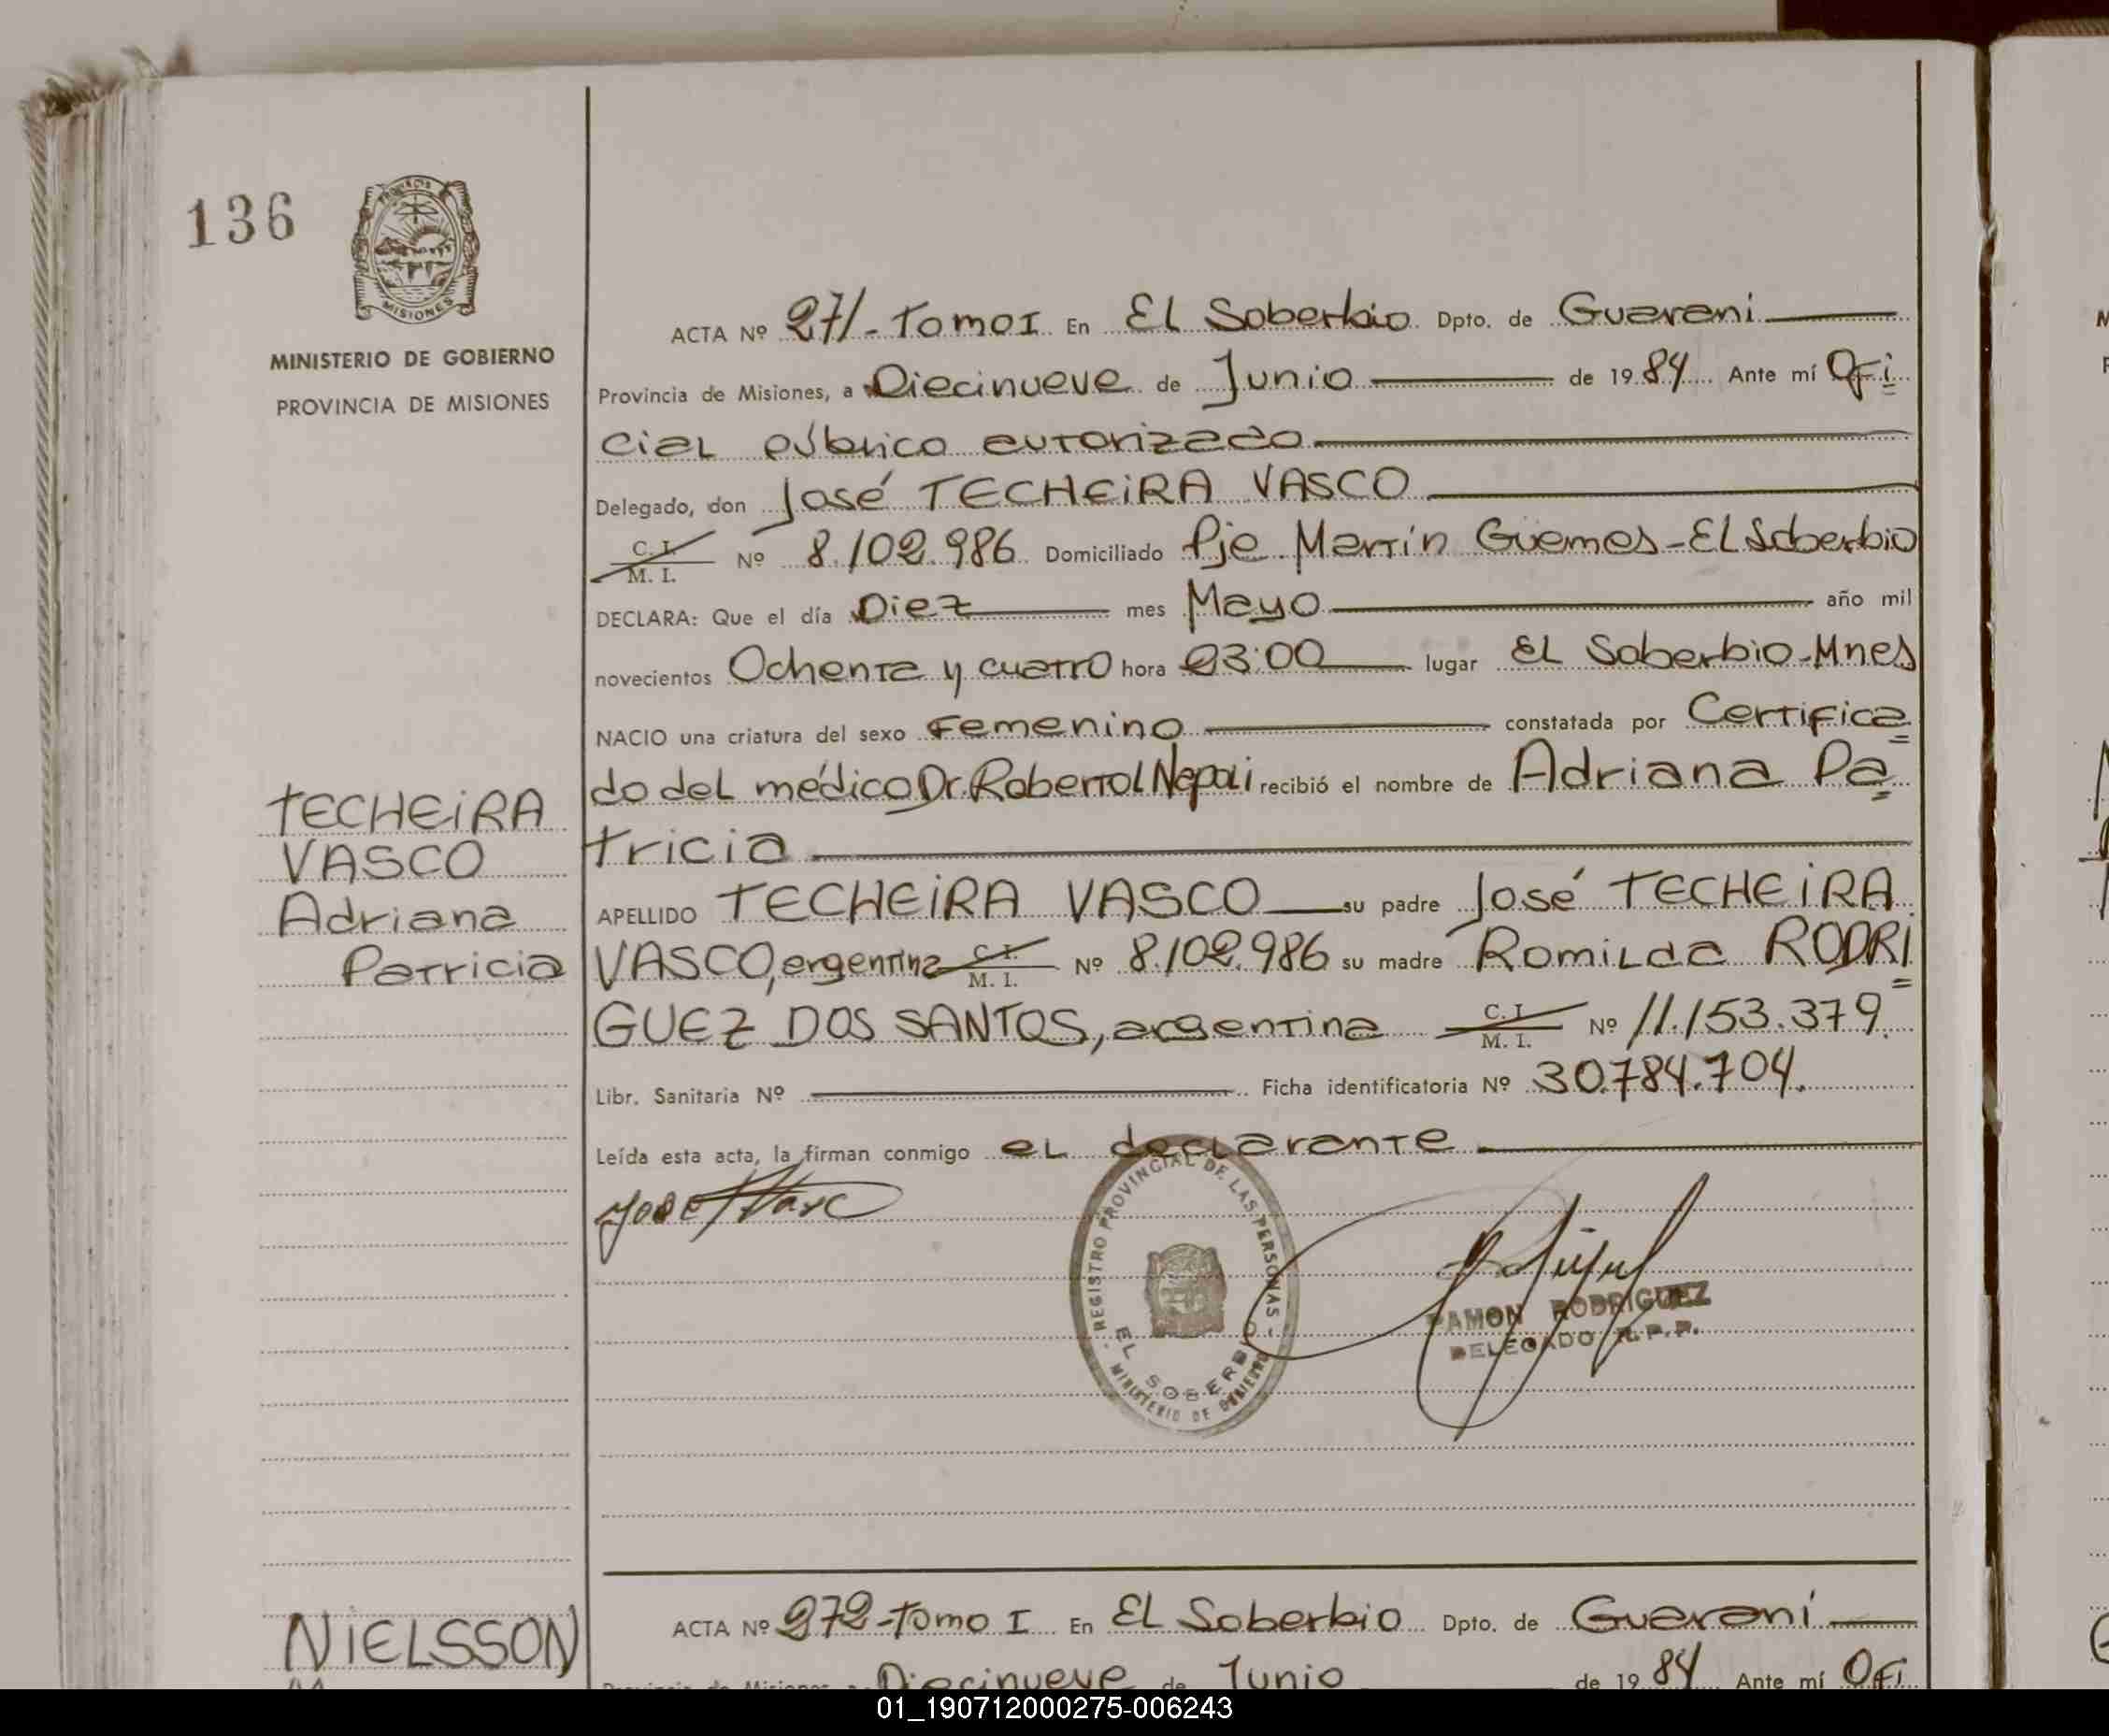 136
PROVINCIA
MISIONES
MINISTERIO DE GOBIERNO
PROVINCIA DE MISIONES
ACTA Nº 271-Tomo I En El Soberbio Dpto. de Guarani
Provincia de Misiones, a Diecinueve de Junio de 1984 Ante mí Ofi
cial público autorizado
Delegado, don José TECHEiRA VASCO
C. I. / M. I. Nº 8.102.986 Domiciliado Pje Martín Güemes-El Soberbio
DECLARA: Que el día Diez mes Mayo año mil
novecientos Ochenta y cuatro hora 03:00 lugar El Soberbio-Mnes
NACIO una criatura del sexo Femenino constatada por Certifica
do del médico Dr. Roberto L Napoli recibió el nombre de Adriana Pa
tricia
TECHEiRA
VASCO
Adriana
Patricia
APELLIDO TECHEiRA VASCO su padre José TECHEiRA
VASCO, argentina C. I. / M. I. Nº 8.102.986 su madre Romilda RODRI
GUEZ DOS SANTOS, argentina C. I. / M. I. Nº 11.153.379.
Libr. Sanitaria Nº Ficha identificatoria Nº 30.784.704.
Leída esta acta, la firman conmigo el declarante
REGISTRO PROVINCIAL DE LAS PERSONAS
EL SOBERBIO
MINISTERIO DE GOBIERNO
RAMON RODRIGUEZ
DELEGADO R.P.P.
NiELSSON
ACTA Nº 272-Tomo I En El Soberbio Dpto. de Guaraní
Provincia de Misiones, a Diecinueve de Junio de 1984 Ante mí Ofi
01_190712000275-006243